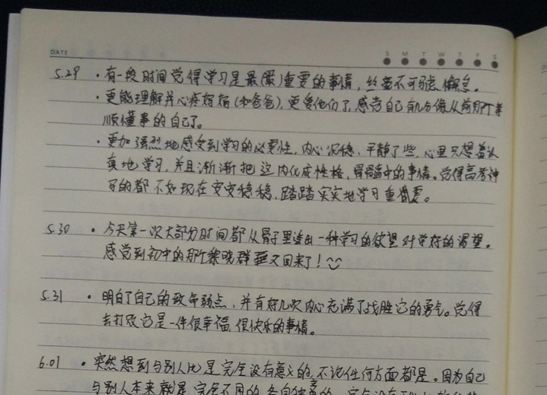 DATE
S M T W T F S
5.29 · 有一段时间觉得学习是最(最)重要的事情，丝毫不可亏, 懈怠。
· 更能理解并心疼妈妈(和爸爸), 更爱他们了, 感觉自己有几分像从前那个孝
顺懂事的自己了。
· 更加强烈地感受到学习的必要性, 内心沉稳, 平静了些, 心里只想着认
真地学习, 并且渐渐把这内化成性格, 骨髓中的事情。觉得高考
可的都不如现在安安稳稳, 踏踏实实地学习重要。
5.30 · 今天第一次大部分时间都从骨子里透出一种学习的欲望, 对学校的渴望。
感觉到初中的那个我又回来了!
5.31 · 明白了自己的致命弱点, 并有好几次内心充满了战胜它的勇气。觉得
去打败它是一件很幸福, 很快乐的事情。
6.01 · 突然想到与别人比是完全没有意义的, 不论任何方面都是。因为自己
与别人本来就是完全不同的,